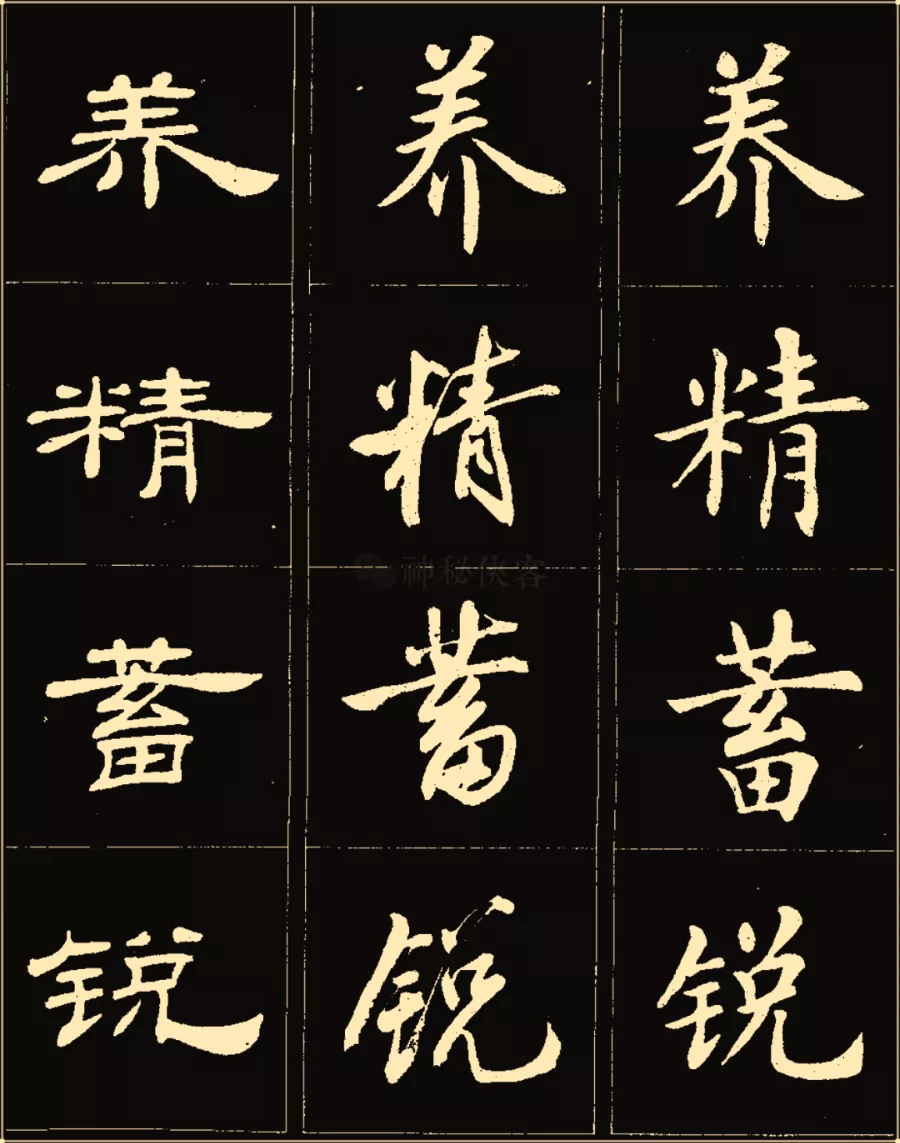 养精蓄锐
养精蓄锐
养精蓄锐
神秘侠客